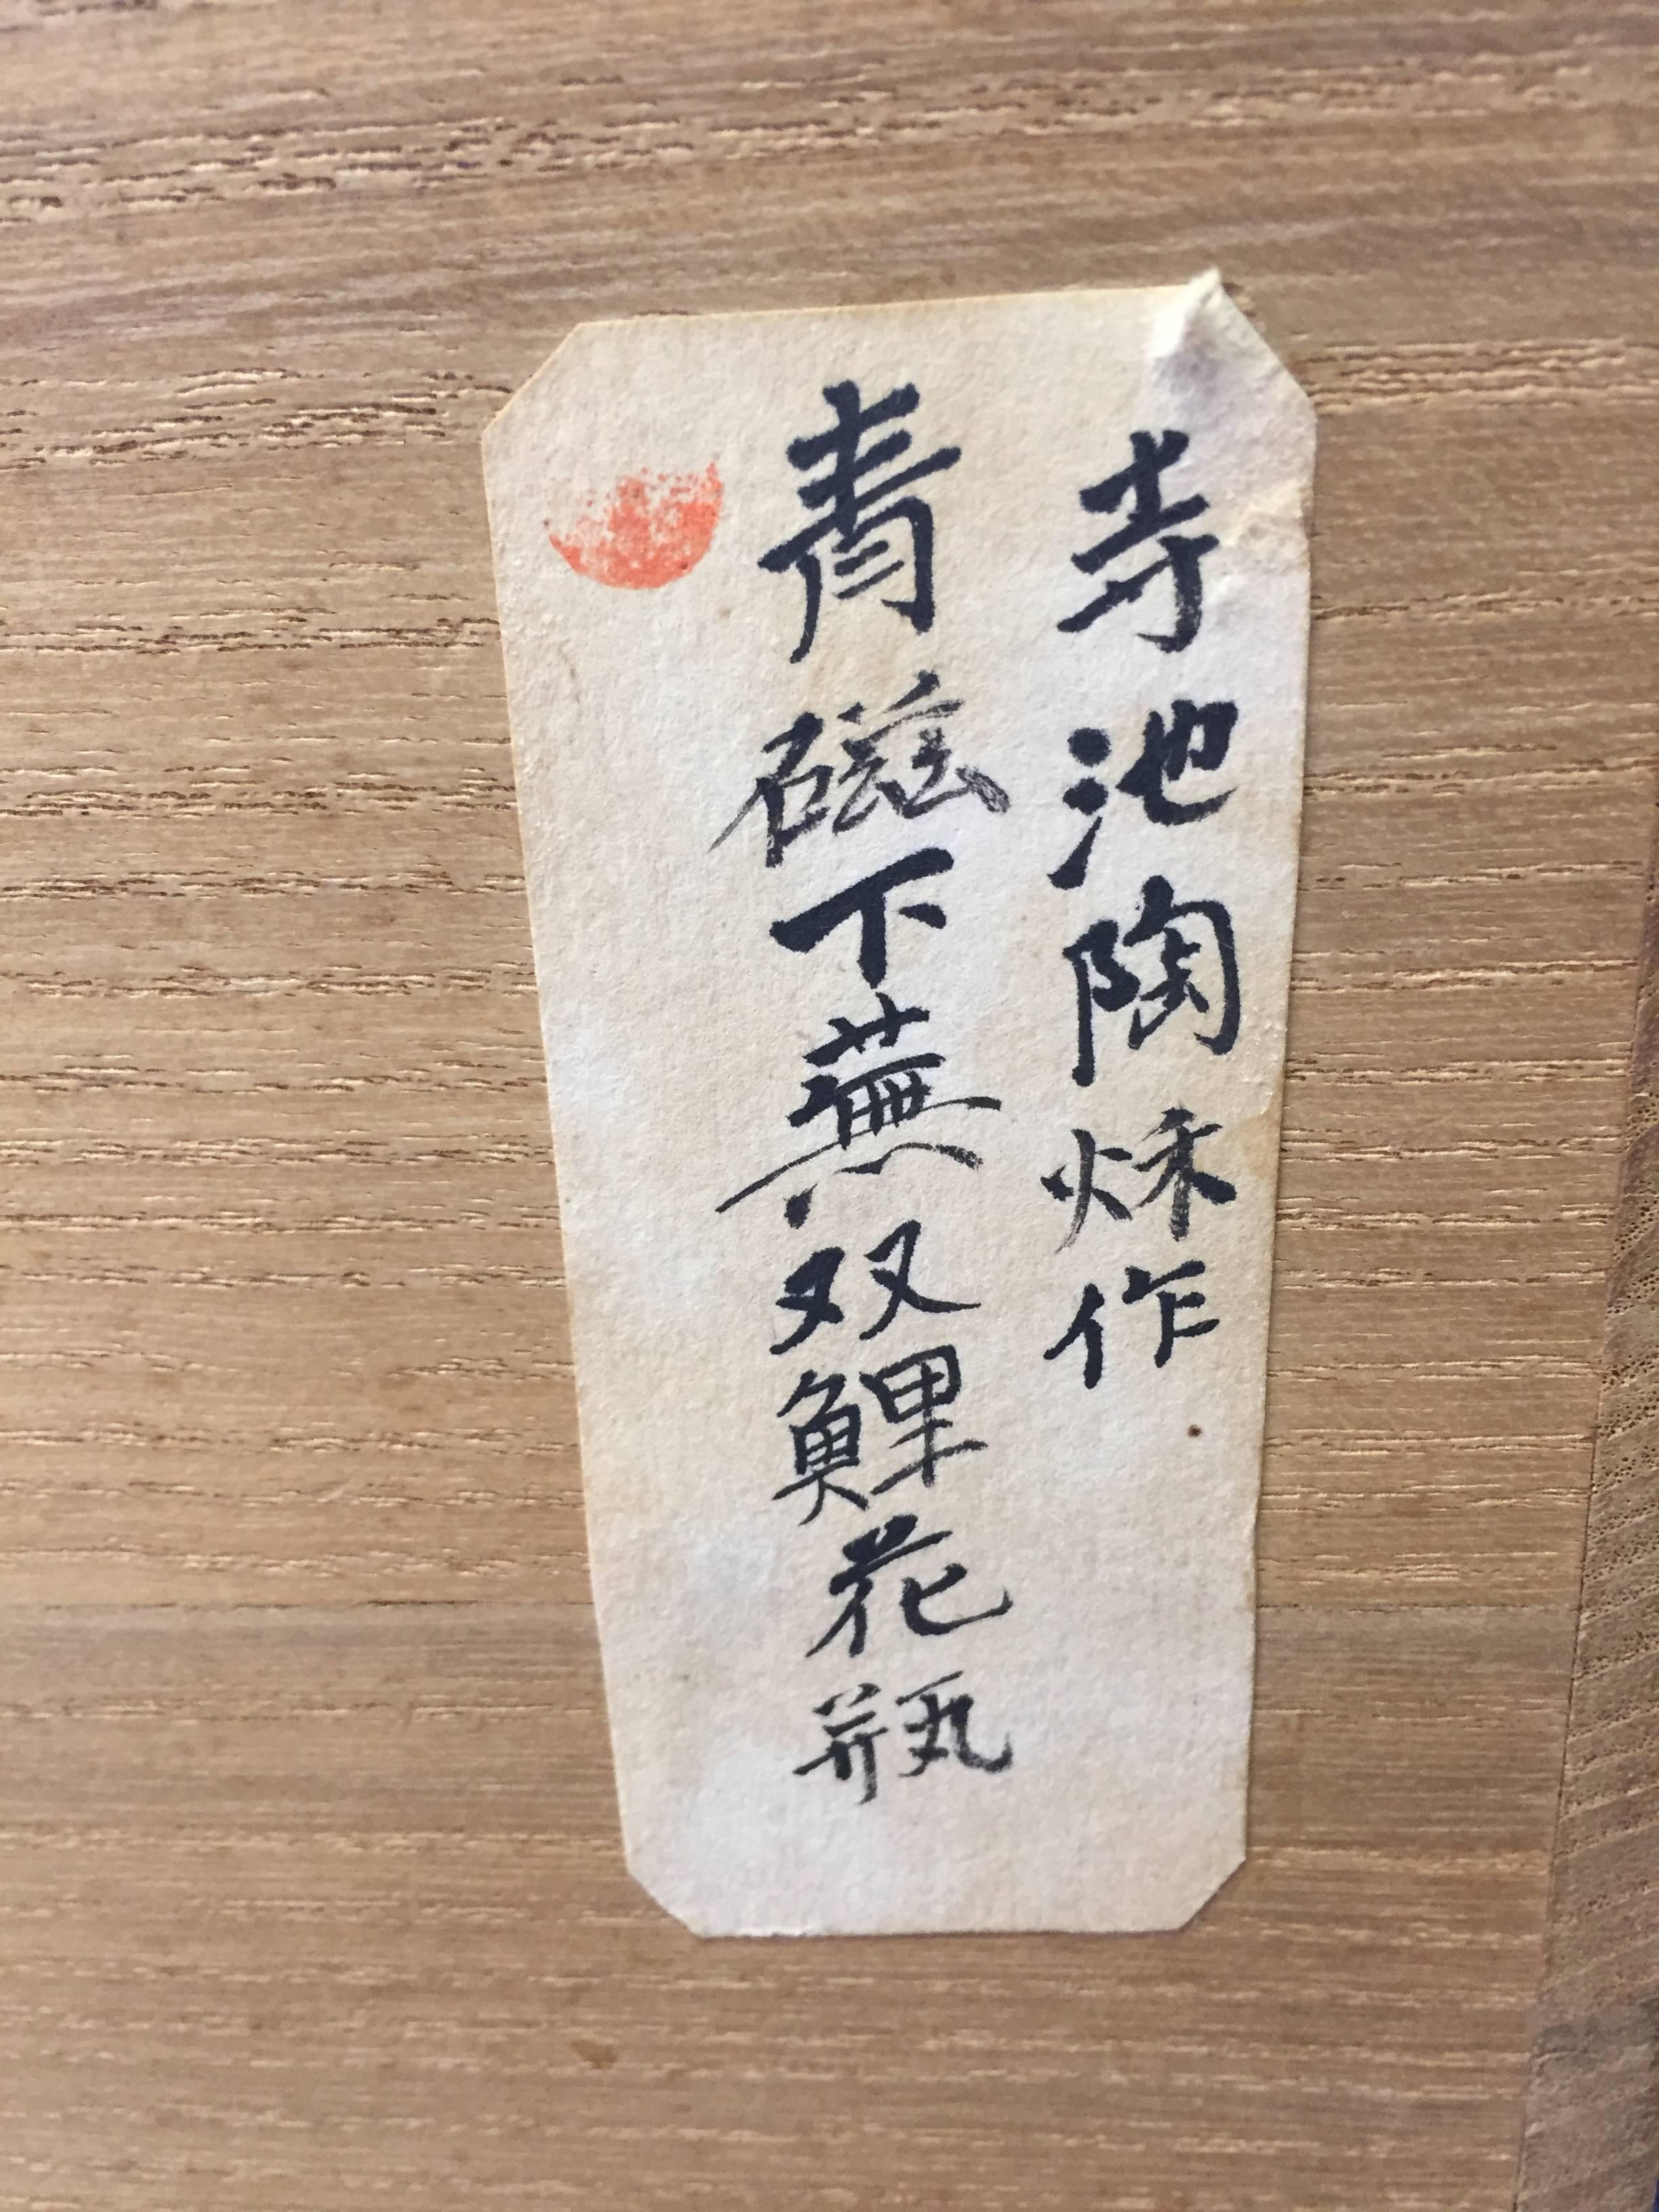 寺池陶秌作
青磁下蕪双鯉花瓶